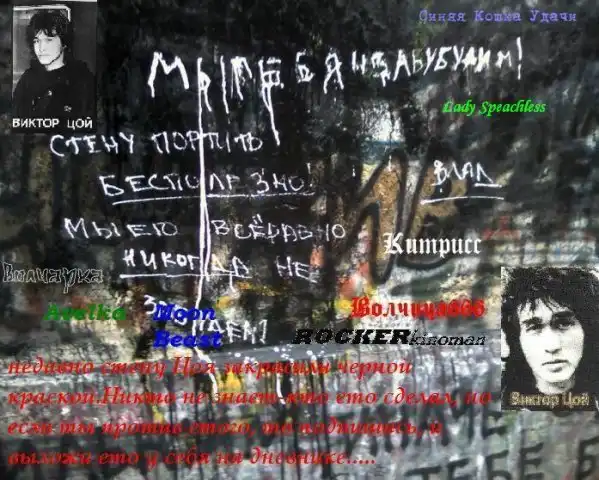 Синяя Кошка Удачи
МЫ ТЕБЯ НЕ ЗАБУДИМ!
Lady Speachless
ВИКТОР ЦОЙ
СТЕНУ ПОРТИТЬ
БЕСПОЛЕЗНО!
ВЛАД
МЫ ЕГО ВСЁРАВНО
НИКОГДА НЕ
Китрисс
Волчарка
Avelka Moon
Beast
Волчица666
ROCKERkinoman
недавно стену Цоя закрасили черной
краской.Никто не знает кто ето сделал, но
если ты против етого, то подпишись, и
выложи ето у себя на дневнике.....
Виктор Цой